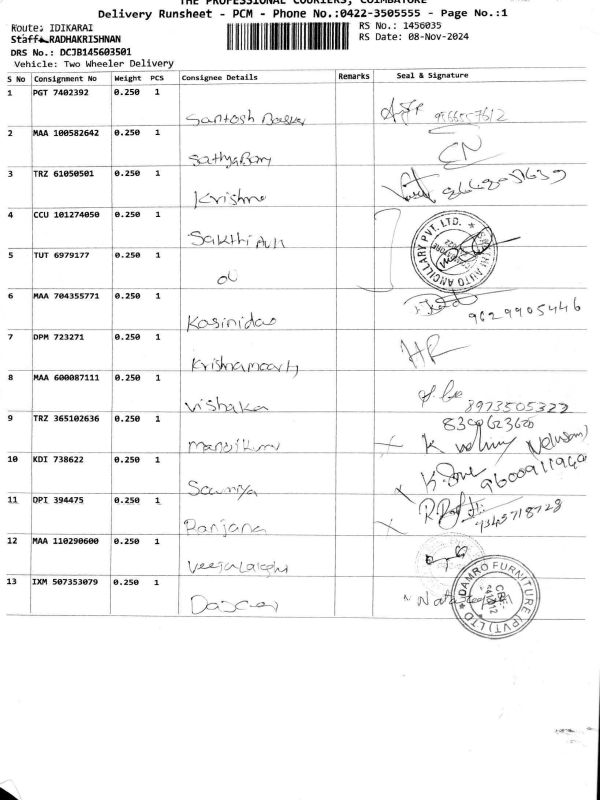 THE PROFESSIONAL COURIERS, COIMBATORE
Delivery Runsheet - PCM - Phone No.:0422-3505555 - Page No.:1
Route: IDIKARAI
RS No.: 1456035
Staff: RADHAKRISHNAN
RS Date: 08-Nov-2024
DRS No.: DCJB145603501
Vehicle: Two Wheeler Delivery
S No Consignment No Weight PCS Consignee Details Remarks Seal & Signature
1 PGT 7402392 0.250 1
Santosh 9566557612
2 MAA 100582642 0.250 1
Sathya CN
3 TRZ 61050501 0.250 1
Krishna
4 CCU 101274050 0.250 1
Sakthi
5 TUT 6979177 0.250 1
ANCILLARY PVT. LTD.
6 MAA 704355771 0.250 1
9629905446
7 DPM 723271 0.250 1
Krishnamoorthy HR
8 MAA 600087111 0.250 1
Vishaka 8973505322
9 TRZ 365102636 0.250 1
8300623620
10 KDI 738622 0.250 1
Sowmya
11 DPI 394475 0.250 1
Ranjana 9345718728
12 MAA 110290600 0.250 1
13 IXM 507353079 0.250 1
DAMRO FURNITURE (PVT) LTD